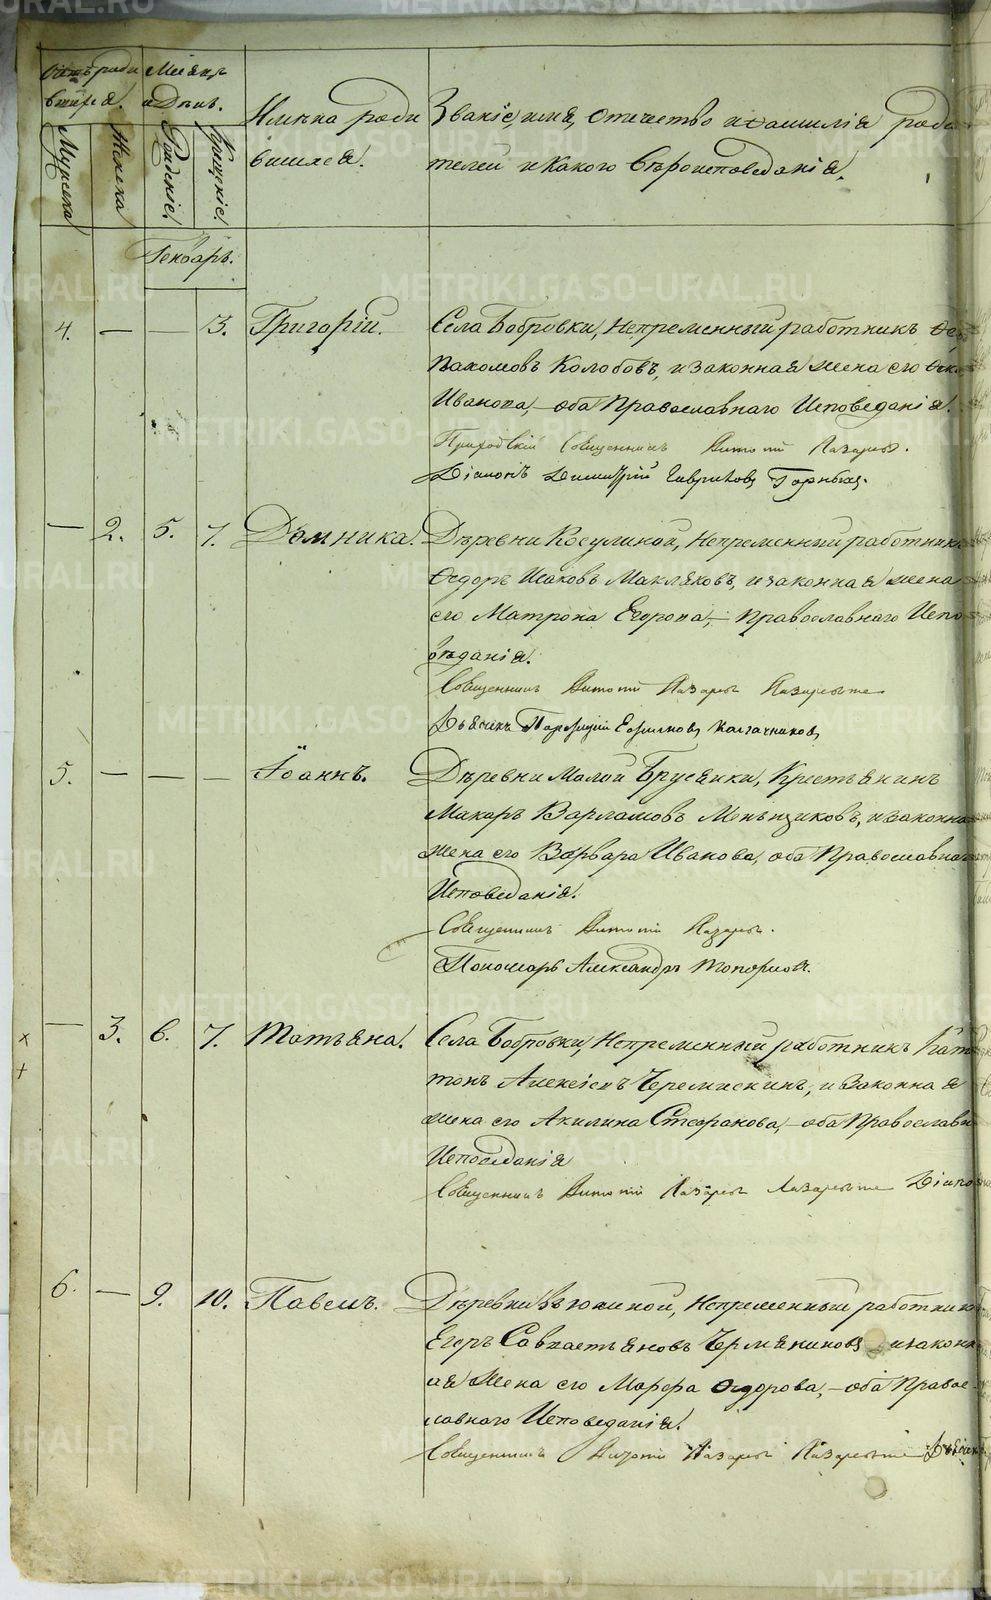 Счетъ роди
вшихся.
Мѣсяцъ
и День.
Имѣна роди
вшихся.
Званіе, имя, Отичество и фамилія роди
телей и какого Вѣроисповеданія.
Мужеска
Женска
Рожденіе.
Крещеніе.
Генварь.
4. — — 3. Григорій. Села Бобровки, Непременный работникъ
Пахомовъ Колобовъ, и законная жена его
Иванова, — оба Православнаго Исповеданія.
Приходскій Священникъ Лазаревъ.
Діаконъ Димитрій Гавриловъ Горныхъ.
— 2. 5. 7. Домника. Деревни Косулиной, Непременный работникъ
Ѳедоръ Исаковъ Макляковъ, и законная жена
его Матрона Егорова, — Православнаго Испо
веданія.
Священникъ Лазаревъ
Дьячекъ Порфирій Калачниковъ
5. — — — Іоаннъ. Деревни Малой Брусянки, Крестьянинъ
Макаръ Варламовъ Меньщиковъ, и законна
жена его Варвара Иванова, оба Православна
Исповеданія.
Священникъ Лазаревъ.
Пономарь Александръ Топорковъ.
— 3. 6. 7. Татьяна. Села Бобровки, Непременный работникъ Пла
тонъ Алексіевъ Черемискинъ, и Законная
жена его Акилина Стефанова, — оба Православн
Исповеданія
Священникъ Лазаревъ Діако
6. — 9. 10. Павелъ. Деревни Вьюхиной, Непременный работник
Егоръ Савастьяновъ Чермяниновъ и закон
ая Жена его Марфа Ѳедорова, — оба Правос
лавнаго Исповеданія.
Священникъ Лазаревъ Дьячек
METRIKI.GASO-URAL.RU